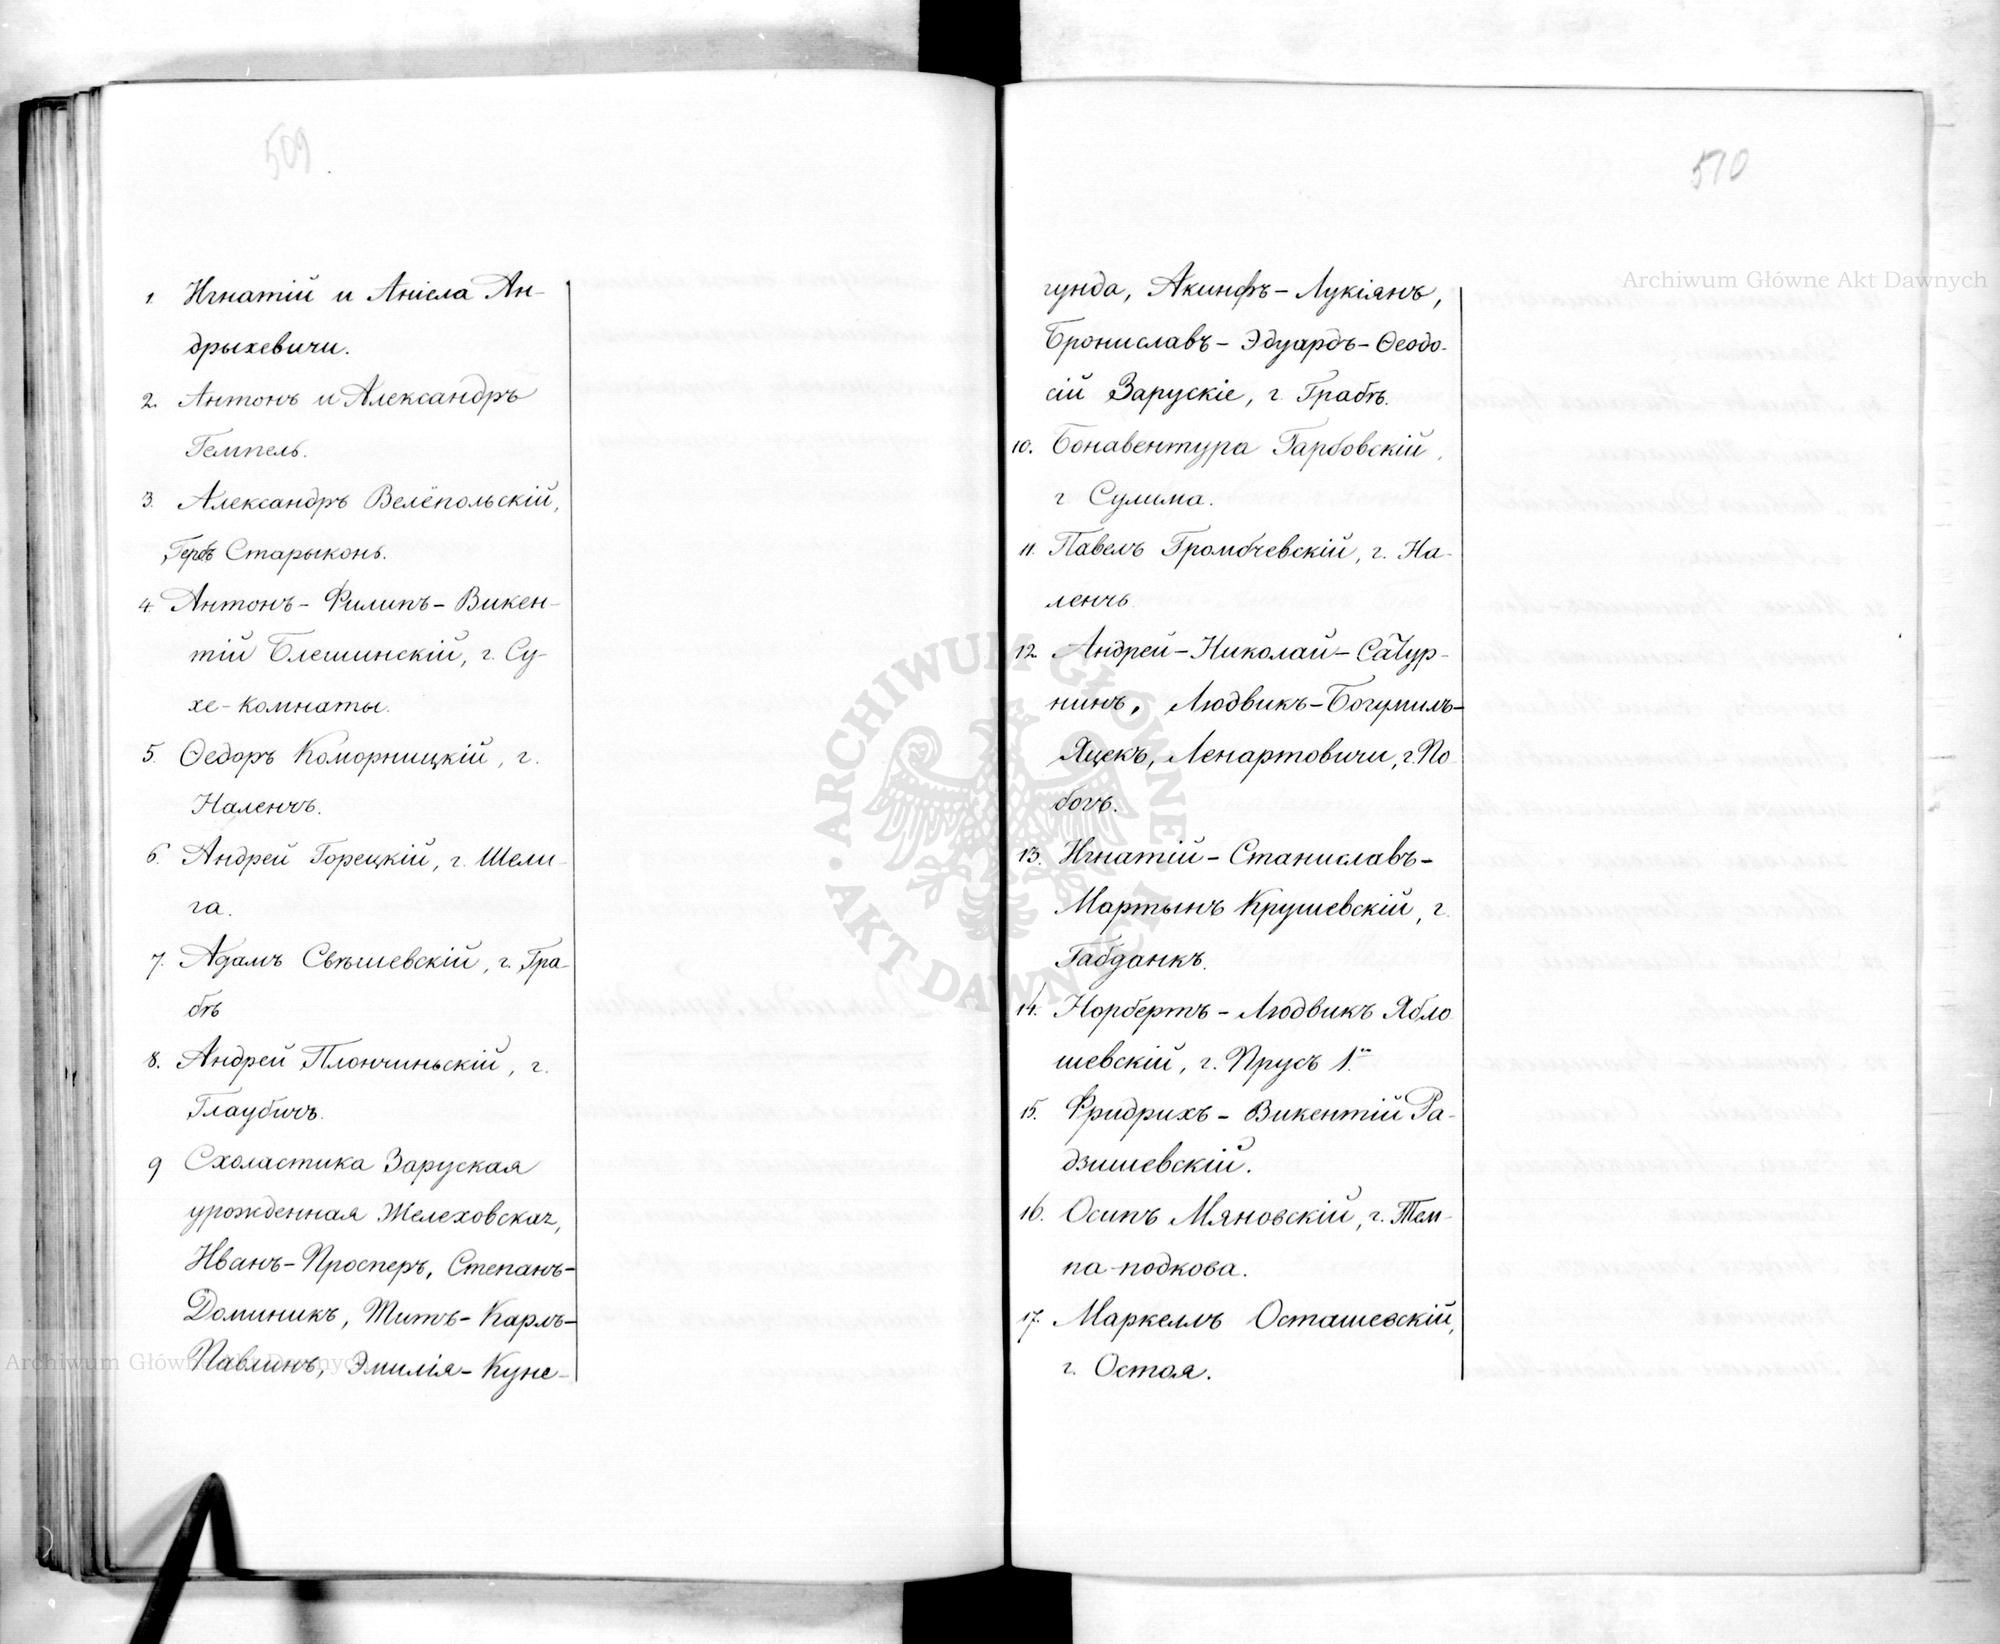 509.
1. Игнатій и Аніела Ан-
дрыхевичи.
2. Антонъ и Александръ
Гемпель.
3. Александръ Велёпольскій,
Гербъ Старыконь.
4. Антонъ-Филипъ-Викен-
тій Блешинскій, г. Су-
хе-комнаты.
5. Ѳедоръ Коморницкій, г.
Наленчъ.
6. Андрей Горецкій, г. Шели-
га.
7. Адамъ Свѣшевскій, г. Гра-
бъ
8. Андрей Плончиньскій, г.
Глаубичъ.
9 Схоластика Заруская
урожденная Желеховская,
Иванъ-Просперъ, Степанъ-
Доминикъ, Титъ-Карлъ-
Павлинъ, Эмилія-Куне-
510
гунда, Акинфъ-Лукіянъ,
Брониславъ-Эдуардъ-Ѳеодо-
сій Зарускіе, г. Грабъ.
10. Бонавентура Гарбовскій,
г Сулима.
11. Павелъ Громбчевскій, г. На-
ленчъ
12. Андрей-Николай-Сатур-
нинъ, Людвикъ-Богумилъ-
Яцекъ, Ленартовичи, г. По
богъ.
13. Игнатій-Станиславъ-
Мартынъ Крушевскій, г.
Габданкъ.
14. Норбертъ-Людвикъ Ябло
шевскій, г. Прусъ 1.
15. Фридрихъ-Викентій Ра-
дзишевскій.
16. Осипъ Мяновскій, г. Тем-
па-подкова.
17. Маркеллъ Осташевскій,
г. Остоя.
Archiwum Główne Akt Dawnych
Archiwum Główne Akt Dawnych
ARCHIWUM GŁÓWNE AKT DAWNYCH